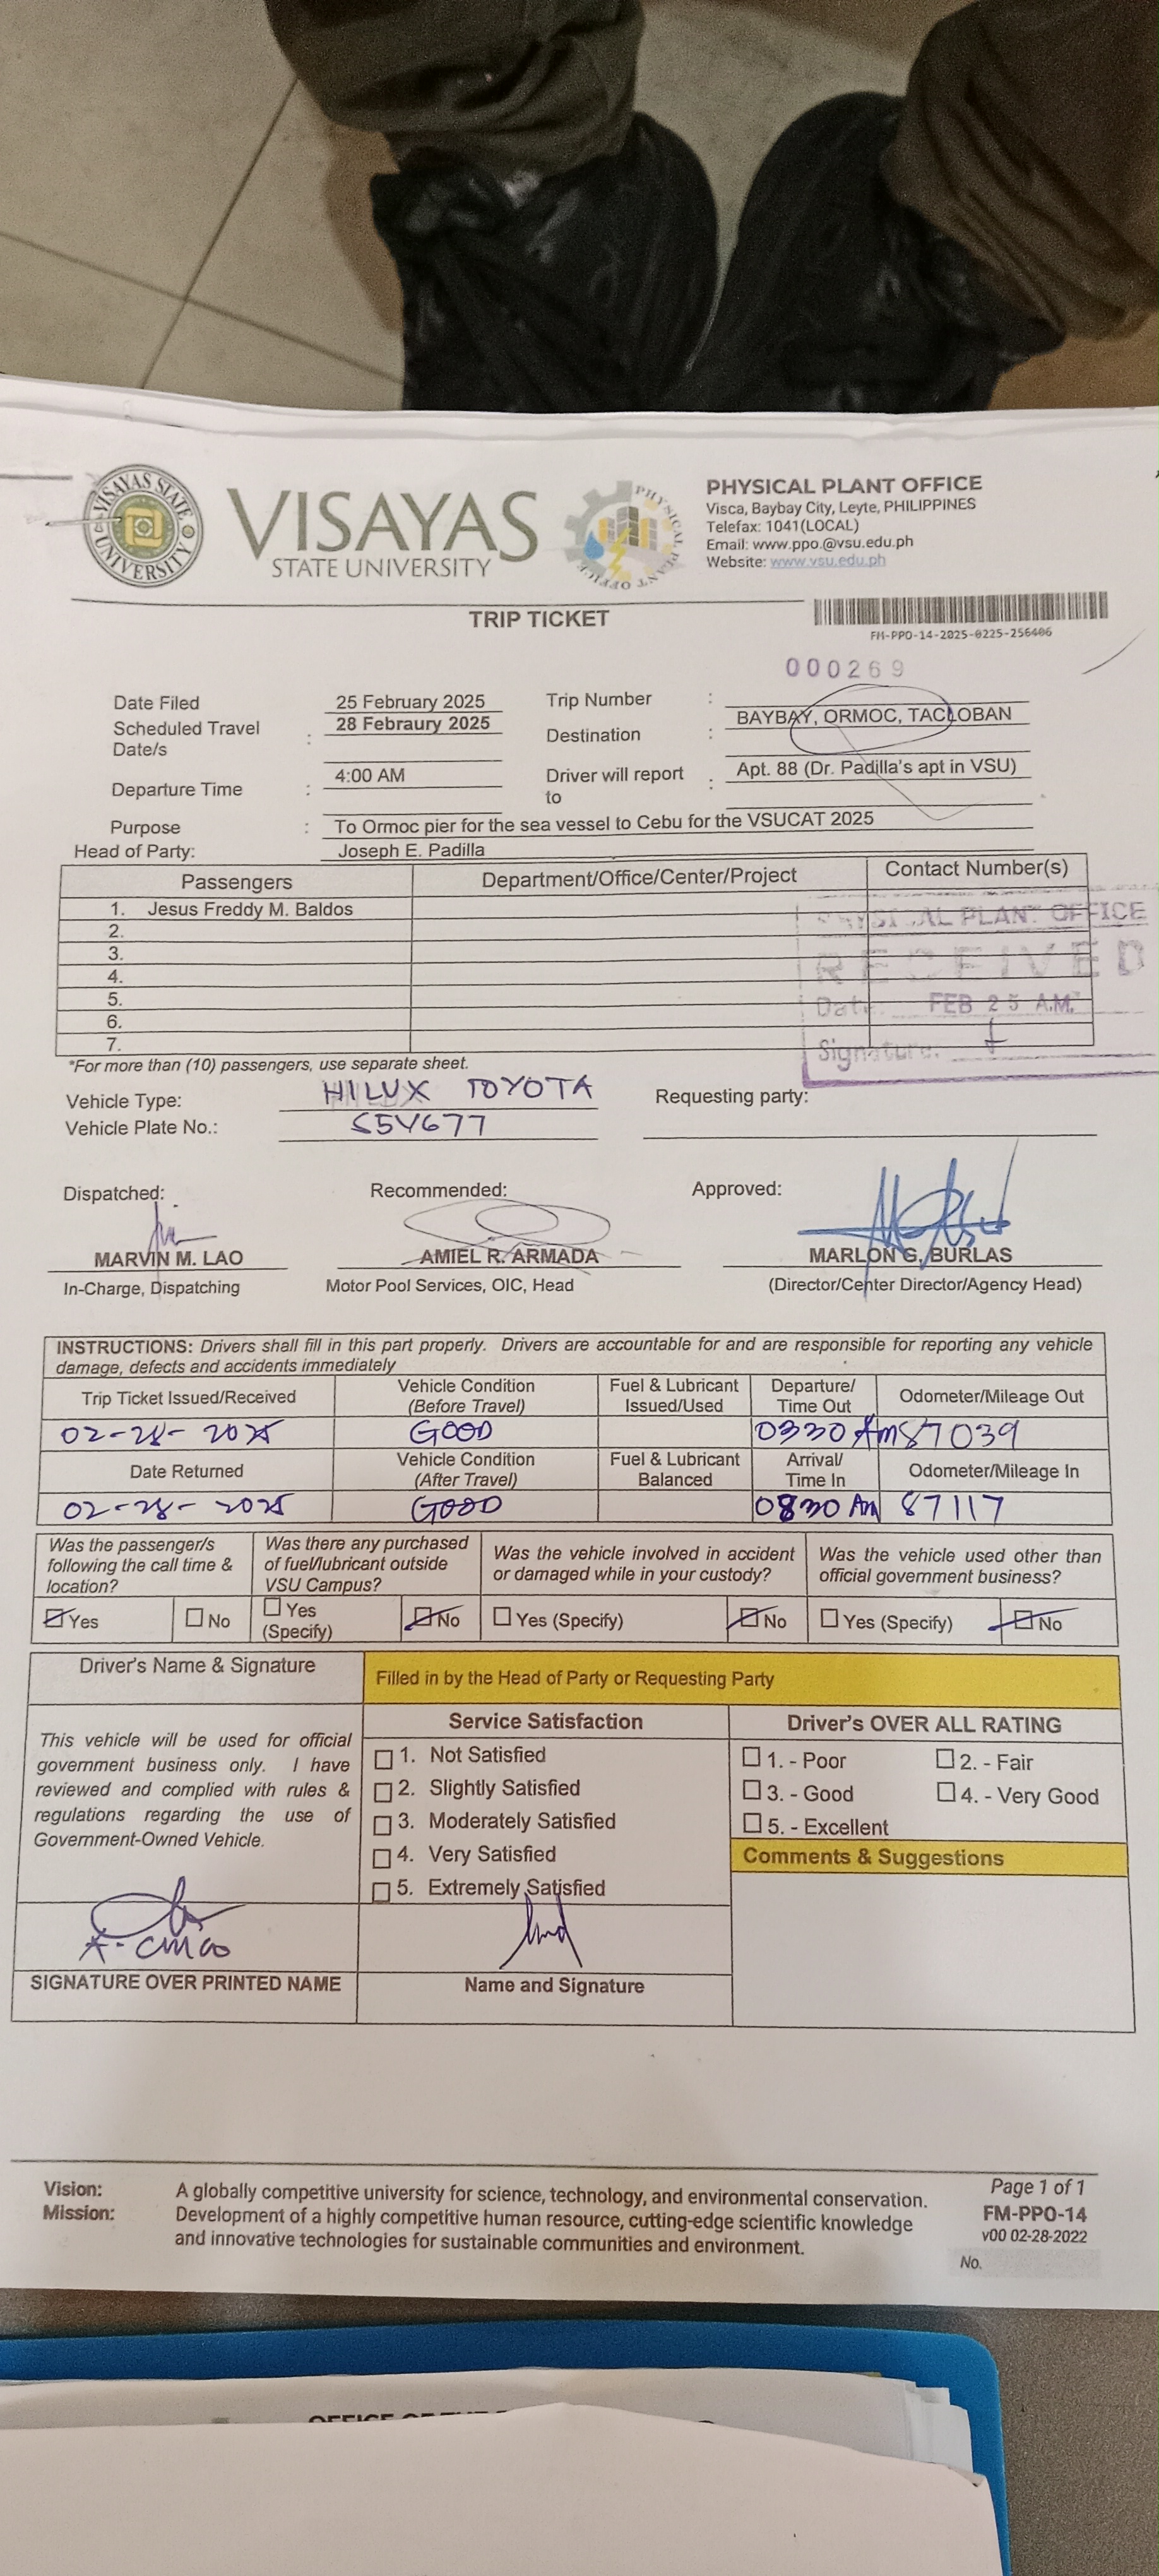 VISAYAS STATE UNIVERSITY
VISAYAS
STATE UNIVERSITY
PHYSICAL PLANT OFFICE
PHYSICAL PLANT OFFICE
Visca, Baybay City, Leyte, PHILIPPINES
Telefax: 1041(LOCAL)
Email: www.ppo.@vsu.edu.ph
Website: www.vsu.edu.ph
TRIP TICKET
FM-PPO-14-2025-0225-256406
000269
Date Filed 25 February 2025 Trip Number :
Scheduled Travel Date/s : 28 Febraury 2025 Destination : BAYBAY, ORMOC, TACLOBAN
Departure Time : 4:00 AM Driver will report to : Apt. 88 (Dr. Padilla's apt in VSU)
Purpose : To Ormoc pier for the sea vessel to Cebu for the VSUCAT 2025
Head of Party: Joseph E. Padilla
Passengers Department/Office/Center/Project Contact Number(s)
1. Jesus Freddy M. Baldos
2.
3.
4.
5.
6.
7.
PHYSICAL PLANT OFFICE
RECEIVED
Date: FEB 25 A.M.
Signature:
*For more than (10) passengers, use separate sheet.
Vehicle Type: HILUX TOYOTA Requesting party:
Vehicle Plate No.: S5Y677
Dispatched: Recommended: Approved:
MARVIN M. LAO AMIEL R. ARMADA MARLON G. BURLAS
In-Charge, Dispatching Motor Pool Services, OIC, Head (Director/Center Director/Agency Head)
INSTRUCTIONS: Drivers shall fill in this part properly. Drivers are accountable for and are responsible for reporting any vehicle
damage, defects and accidents immediately
Trip Ticket Issued/Received Vehicle Condition (Before Travel) Fuel & Lubricant Issued/Used Departure/ Time Out Odometer/Mileage Out
02-28-2025 GOOD 0330 Am 87039
Date Returned Vehicle Condition (After Travel) Fuel & Lubricant Balanced Arrival/ Time In Odometer/Mileage In
02-28-2025 GOOD 0830 Am 87117
Was the passenger/s following the call time & location? Was there any purchased of fuel/lubricant outside VSU Campus? Was the vehicle involved in accident or damaged while in your custody? Was the vehicle used other than official government business?
Yes No Yes (Specify) No Yes (Specify) No Yes (Specify) No
Driver's Name & Signature Filled in by the Head of Party or Requesting Party
Service Satisfaction Driver's OVER ALL RATING
This vehicle will be used for official
government business only. I have
reviewed and complied with rules &
regulations regarding the use of
Government-Owned Vehicle.
1. Not Satisfied
2. Slightly Satisfied
3. Moderately Satisfied
4. Very Satisfied
5. Extremely Satisfied
1. - Poor 2. - Fair
3. - Good 4. - Very Good
5. - Excellent
Comments & Suggestions
SIGNATURE OVER PRINTED NAME Name and Signature
Vision: A globally competitive university for science, technology, and environmental conservation.
Mission: Development of a highly competitive human resource, cutting-edge scientific knowledge
and innovative technologies for sustainable communities and environment.
Page 1 of 1
FM-PPO-14
v00 02-28-2022
No.